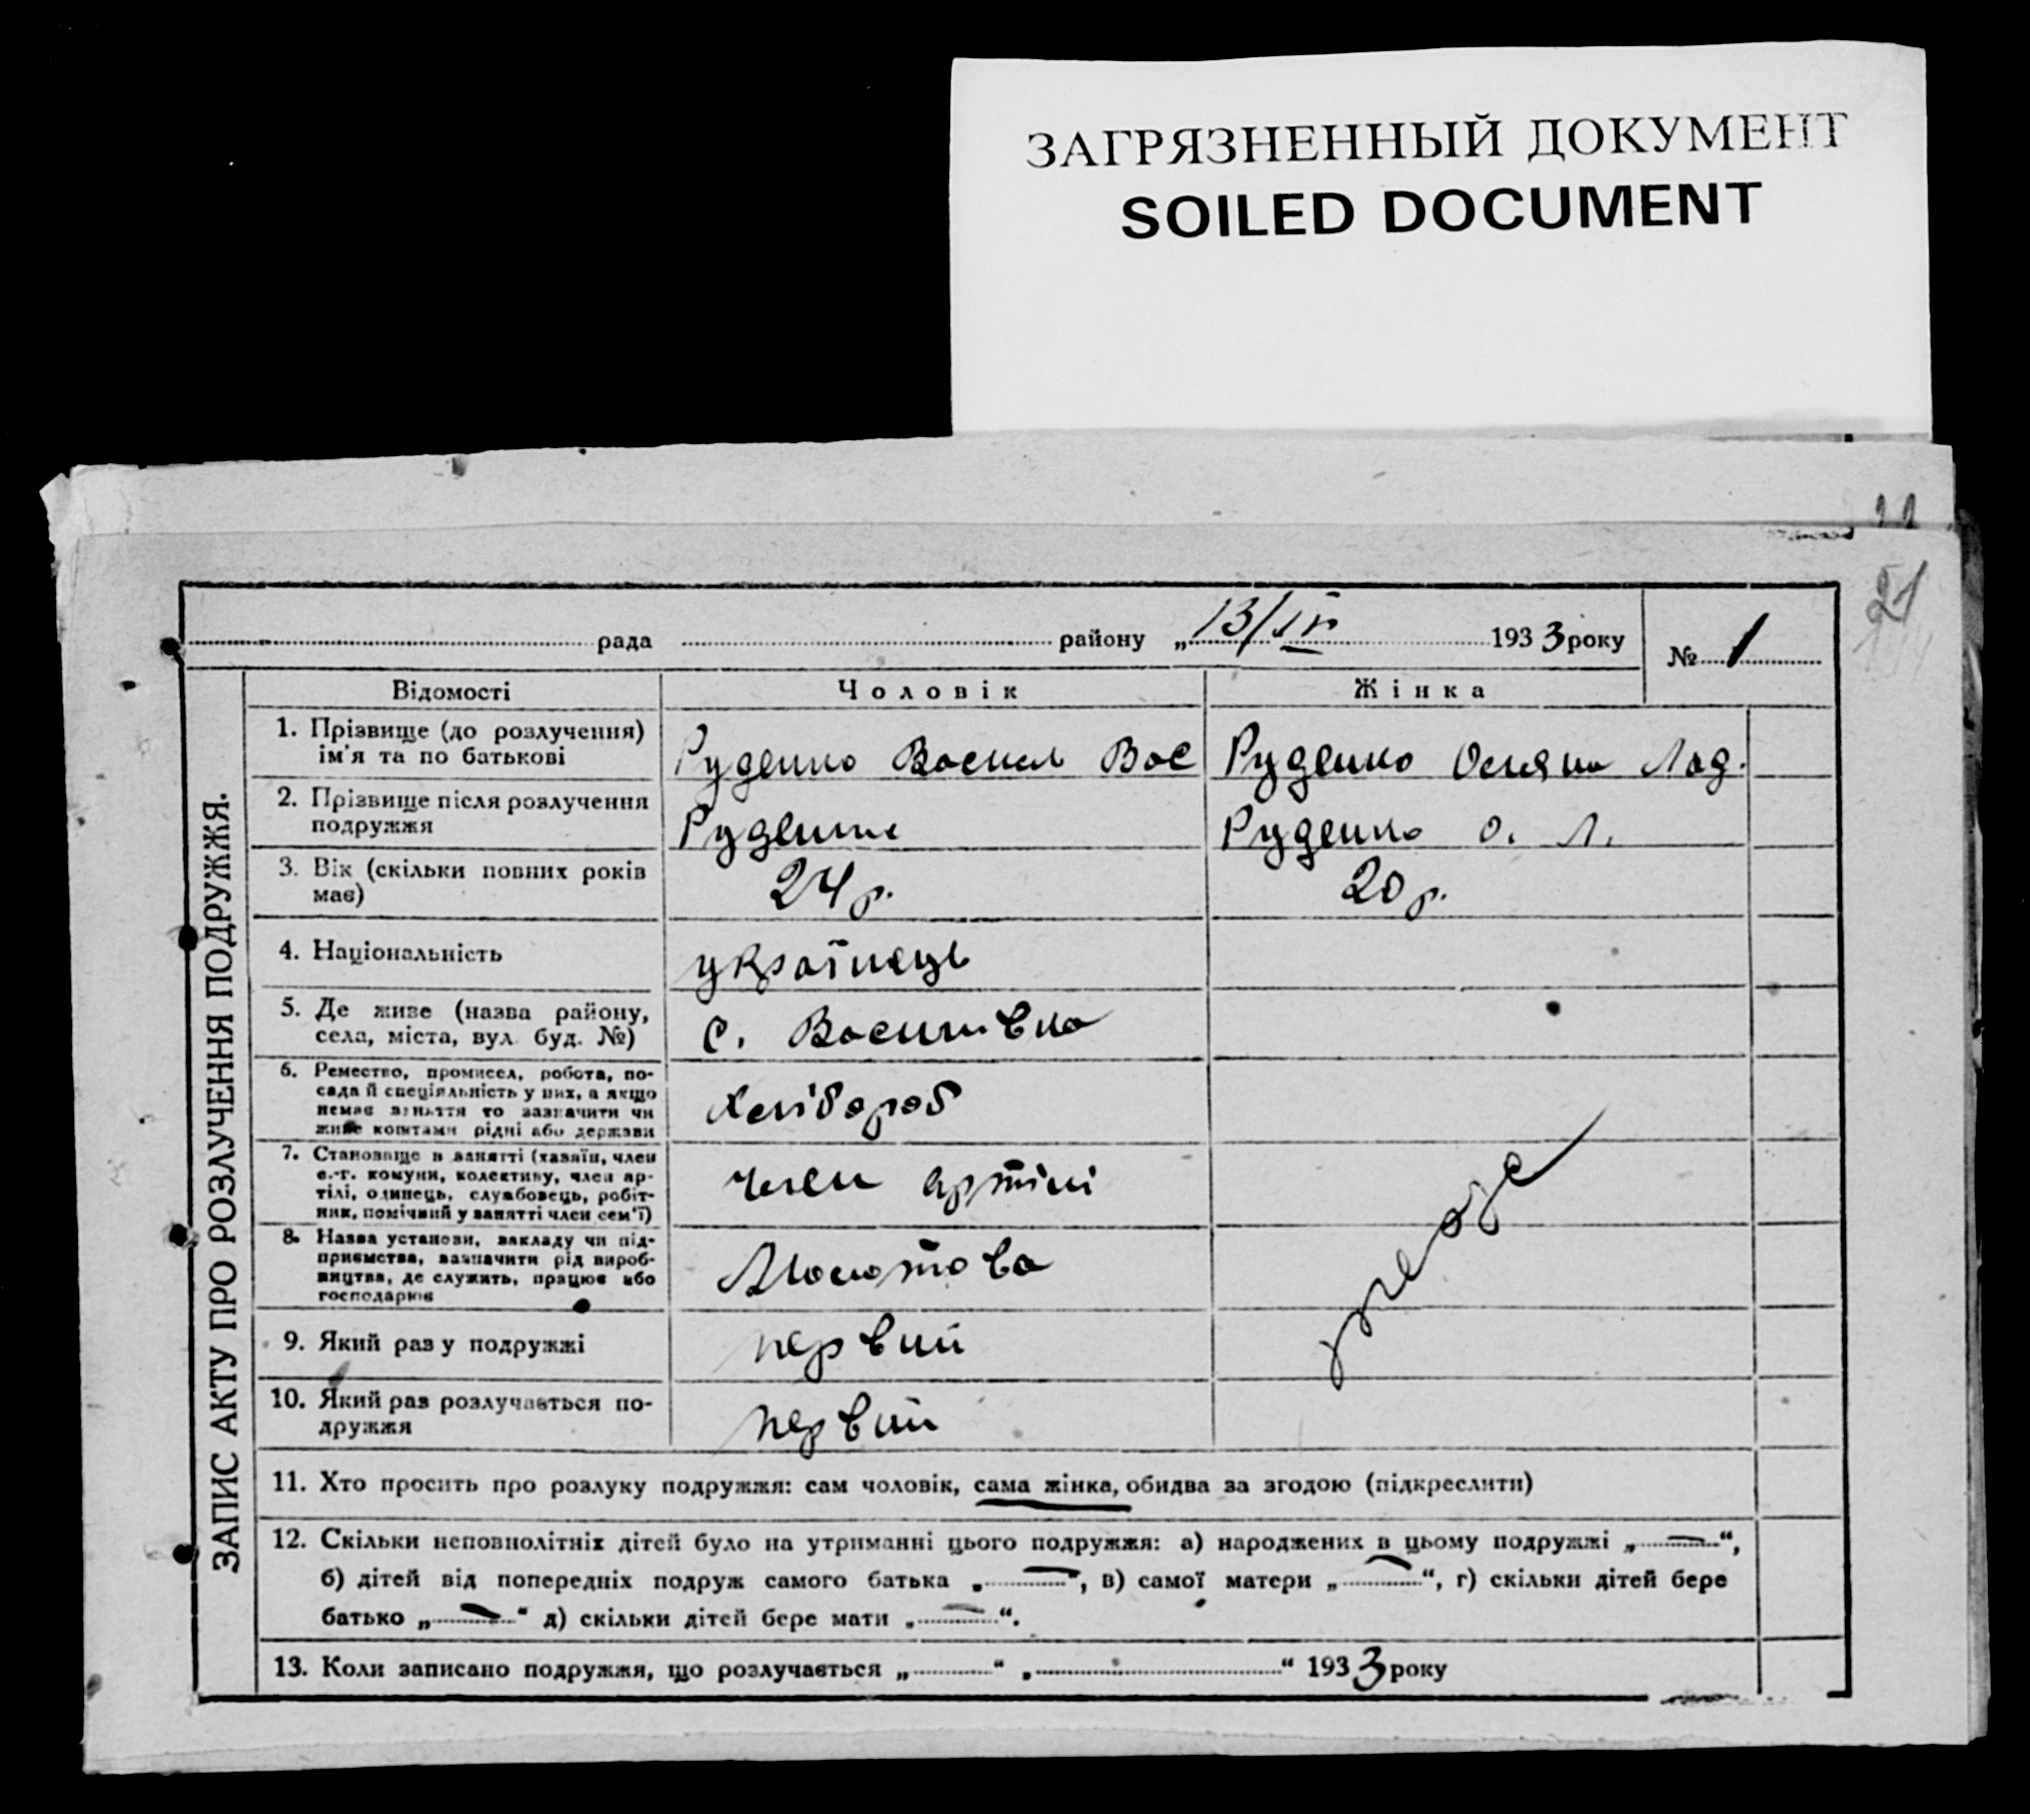 ЗАГРЯЗНЕННЫЙ ДОКУМЕНТ
SOILED DOCUMENT
21
рада района „13/IV 1933 року № 1
ЗАПИС АКТУ ПРО РОЗЛУЧЕННЯ ПОДРУЖЖЯ.
Відомості Чоловік Жінка
1. Прізвище (до розлучення)
ім'я та по батькові
Руденко Василь Вас Руденко Лад.
2. Прізвище після розлучення
подружжя
Руденко Руденко О. Л.
3. Вік (скільки повних років
має)
24 р. 20 р.
4. Національність українець
5. Де живе (назва району,
села, міста, вул. буд. №)
с. Василівка
6. Ремество, промисел, робота, по-
сада й спеціяльність у них, а якщо
немає заняття то зазначити чи
живе коштами рідні або держави
хлібороб
7. Становище в занятті (хазяїн, член
с.-г. комуни, колективу, член ар-
тілі, одинець, службовець, робіт-
ник, помічний у занятті член сем'ї)
член артілі
8. Назва установи, закладу чи під-
приємства, зазначити рід вироб-
ництва, де служить, працює або
господарює
Молотова
9. Який раз у подружжі первий
10. Який раз розлучається по-
дружжя
первий
11. Хто просить про розлуку подружжя: сам чоловік, сама жінка, обидва за згодою (підкреслити)
12. Скільки неповнолітніх дітей було на утриманні цього подружжя: а) народжених в цьому подружжі „—“,
б) дітей від попередніх подруж самого батька „—“, в) самої матери „—“, г) скільки дітей бере
батько „—“ д) скільки дітей бере мати „—“.
13. Коли записано подружжя, що розлучається „ “ „ “ 1933 року